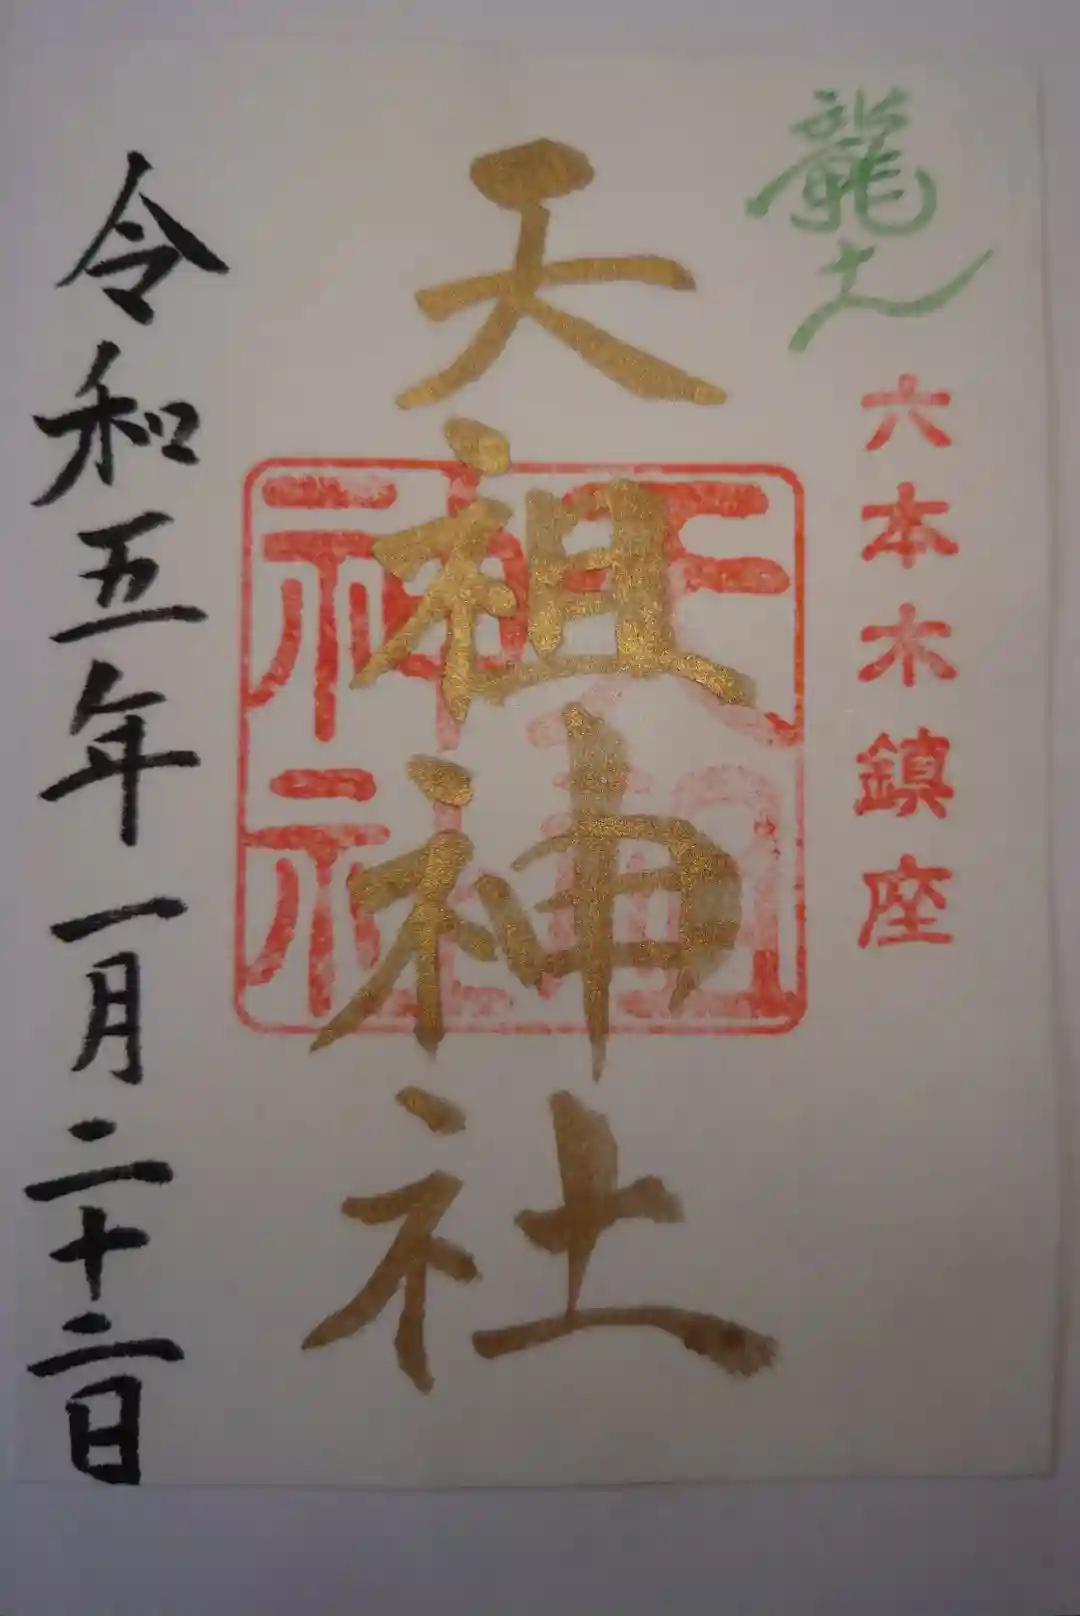 龍土
六本木鎮座
天祖神社
天祖神社
令和五年一月二十二日